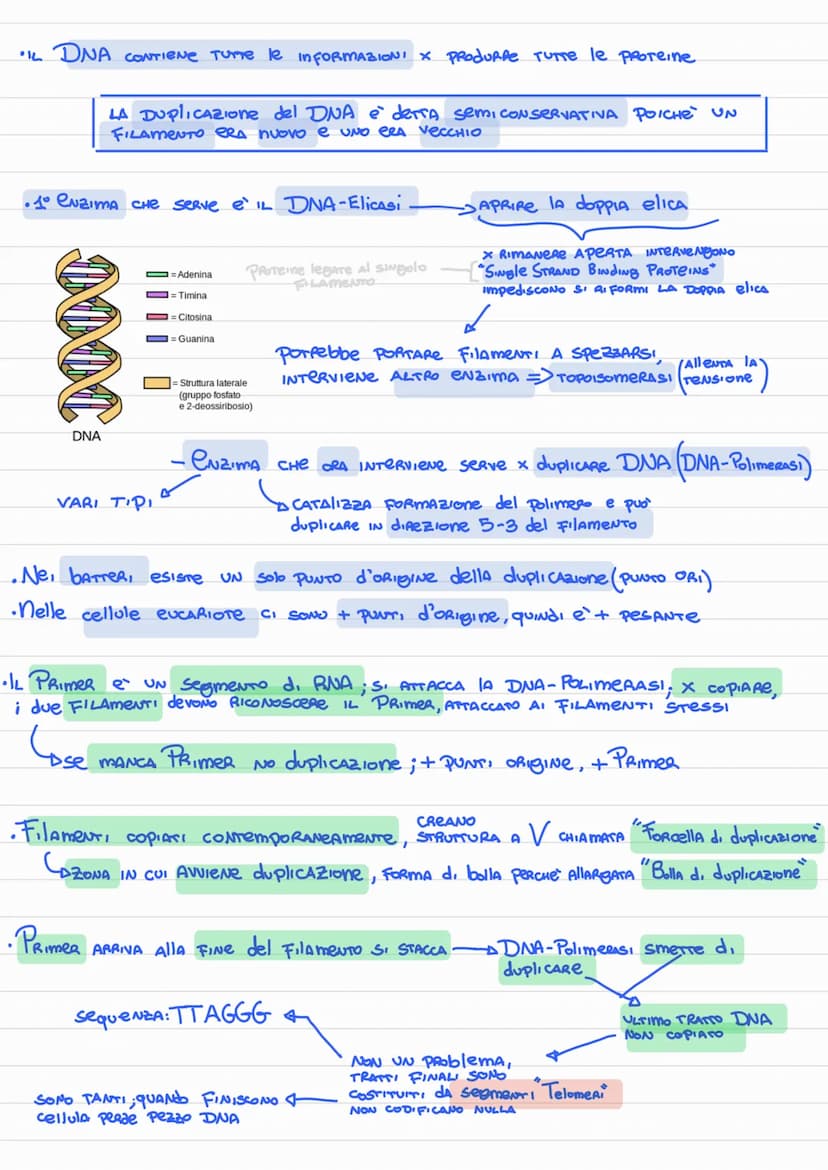 • IL DNA CONTIENE TUTTE le INFORMAZIONI × PRODURRE TUTTE le PROTEINE
LA DUPLICAZIONE del DNA è DETTA SEMICONSERVATIVA POICHÈ UN
FILAMENTO ERA NUOVO E UNO ERA VECCHIO
• 1° ENZIMA CHE SERVE È IL DNA-Elicasi → APRIRE la DOPPIA ELICA
× RIMANERE APERTA INTERVENGONO
"Single STRAND Binding PROTEINS"
IMPEDISCONO SI RIFORMI LA DOPPIA elica
PROTEINE legate al SINGOLO
FILAMENTO
= Adenina
= Timina
= Citosina
= Guanina
= Struttura laterale
(gruppo fosfato
e 2-deossiribosio)
DNA
POTREBBE PORTARE FILAMENTI A SPEZZARSI,
INTERVIENE ALTRO ENZIMA => TOPOISOMERASI (Allenta la TENSIONE)
- ENZIMA CHE ORA INTERVIENE SERVE × duplicare DNA (DNA-Polimerasi)
VARI TIPI
CATALIZZA FORMAZIONE del POLIMERO E PUÒ
duplicare IN DIREZIONE 5-3 del FILAMENTO
• Nei batteri esiste UN solo PUNTO d'ORIGINE della duplicazione (PUNTO ORI)
• Nelle cellule EUCARIOTE CI SONO + PUNTI d'ORIGINE, quindi è + PESANTE
• IL PRIMER È UN segmento di RNA; si ATTACCA la DNA-POLIMERASI; × COPIARE,
i due FILAMENTI devono RICONOSCERE IL PRIMER, ATTACCATO AI FILAMENTI STESSI
SE MANCA PRIMER NO duplicazione ; + PUNTI ORIGINE, + PRIMER
• Filamenti COPIATI CONTEMPORANEAMENTE, CREANO STRUTTURA A V CHIAMATA "Forcella di duplicazione"
ZONA IN CUI AVVIENE duplicazione, FORMA di bolla PERCHÈ Allargata "Bolla di duplicazione"
• PRIMER ARRIVA alla FINE del FILAMENTO SI STACCA → DNA-Polimerasi SMETTE di
duplicare
ULTIMO TRATTO DNA
NON COPIATO
sequenza: TTAGGG
NON UN PROBLEMA,
TRATTI FINALI SONO
COSTITUITI DA segmenti "Telomeri"
NON CODIFICANO NULLA
SONO TANTI; quando FINISCONO
cellula PERDE PEZZO DNA